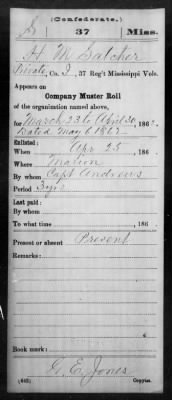 (Confederate.)
S 37 Miss.
H. M. Satcher
Private, Co. I, 37 Reg't Mississippi Vols.
Appears on
Company Muster Roll
of the organization named above,
for March 23 to April 30, 186 2.
Dated May 6 1862
Enlisted:
When Apr 25, 186
Where Marion
By whom Capt Andrews
Period 3 yrs
Last paid:
By whom
To what time , 186
Present or absent Present
Remarks:
Book mark:
G. E. Jones
(642) Copyist.